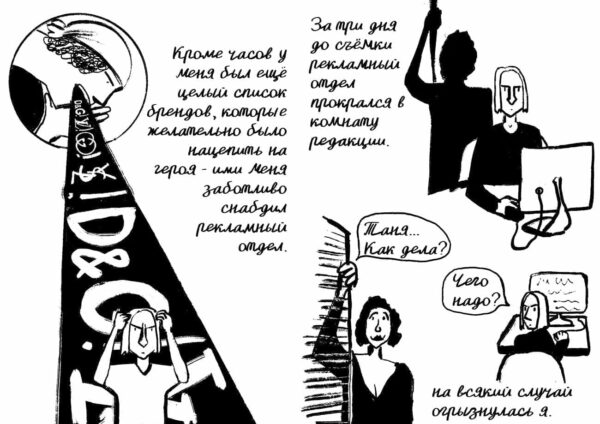 Кроме часов у
меня был ещё
целый список
брендов, которые
желательно было
нацепить на
героя - ими меня
заботливо
снабдил
рекламный
отдел.
D&G
За три дня
до съёмки
рекламный
отдел
прокрался в
комнату
редакции.
Таня...
Как дела?
Чего
надо?
на всякий случай
огрызнулась я.